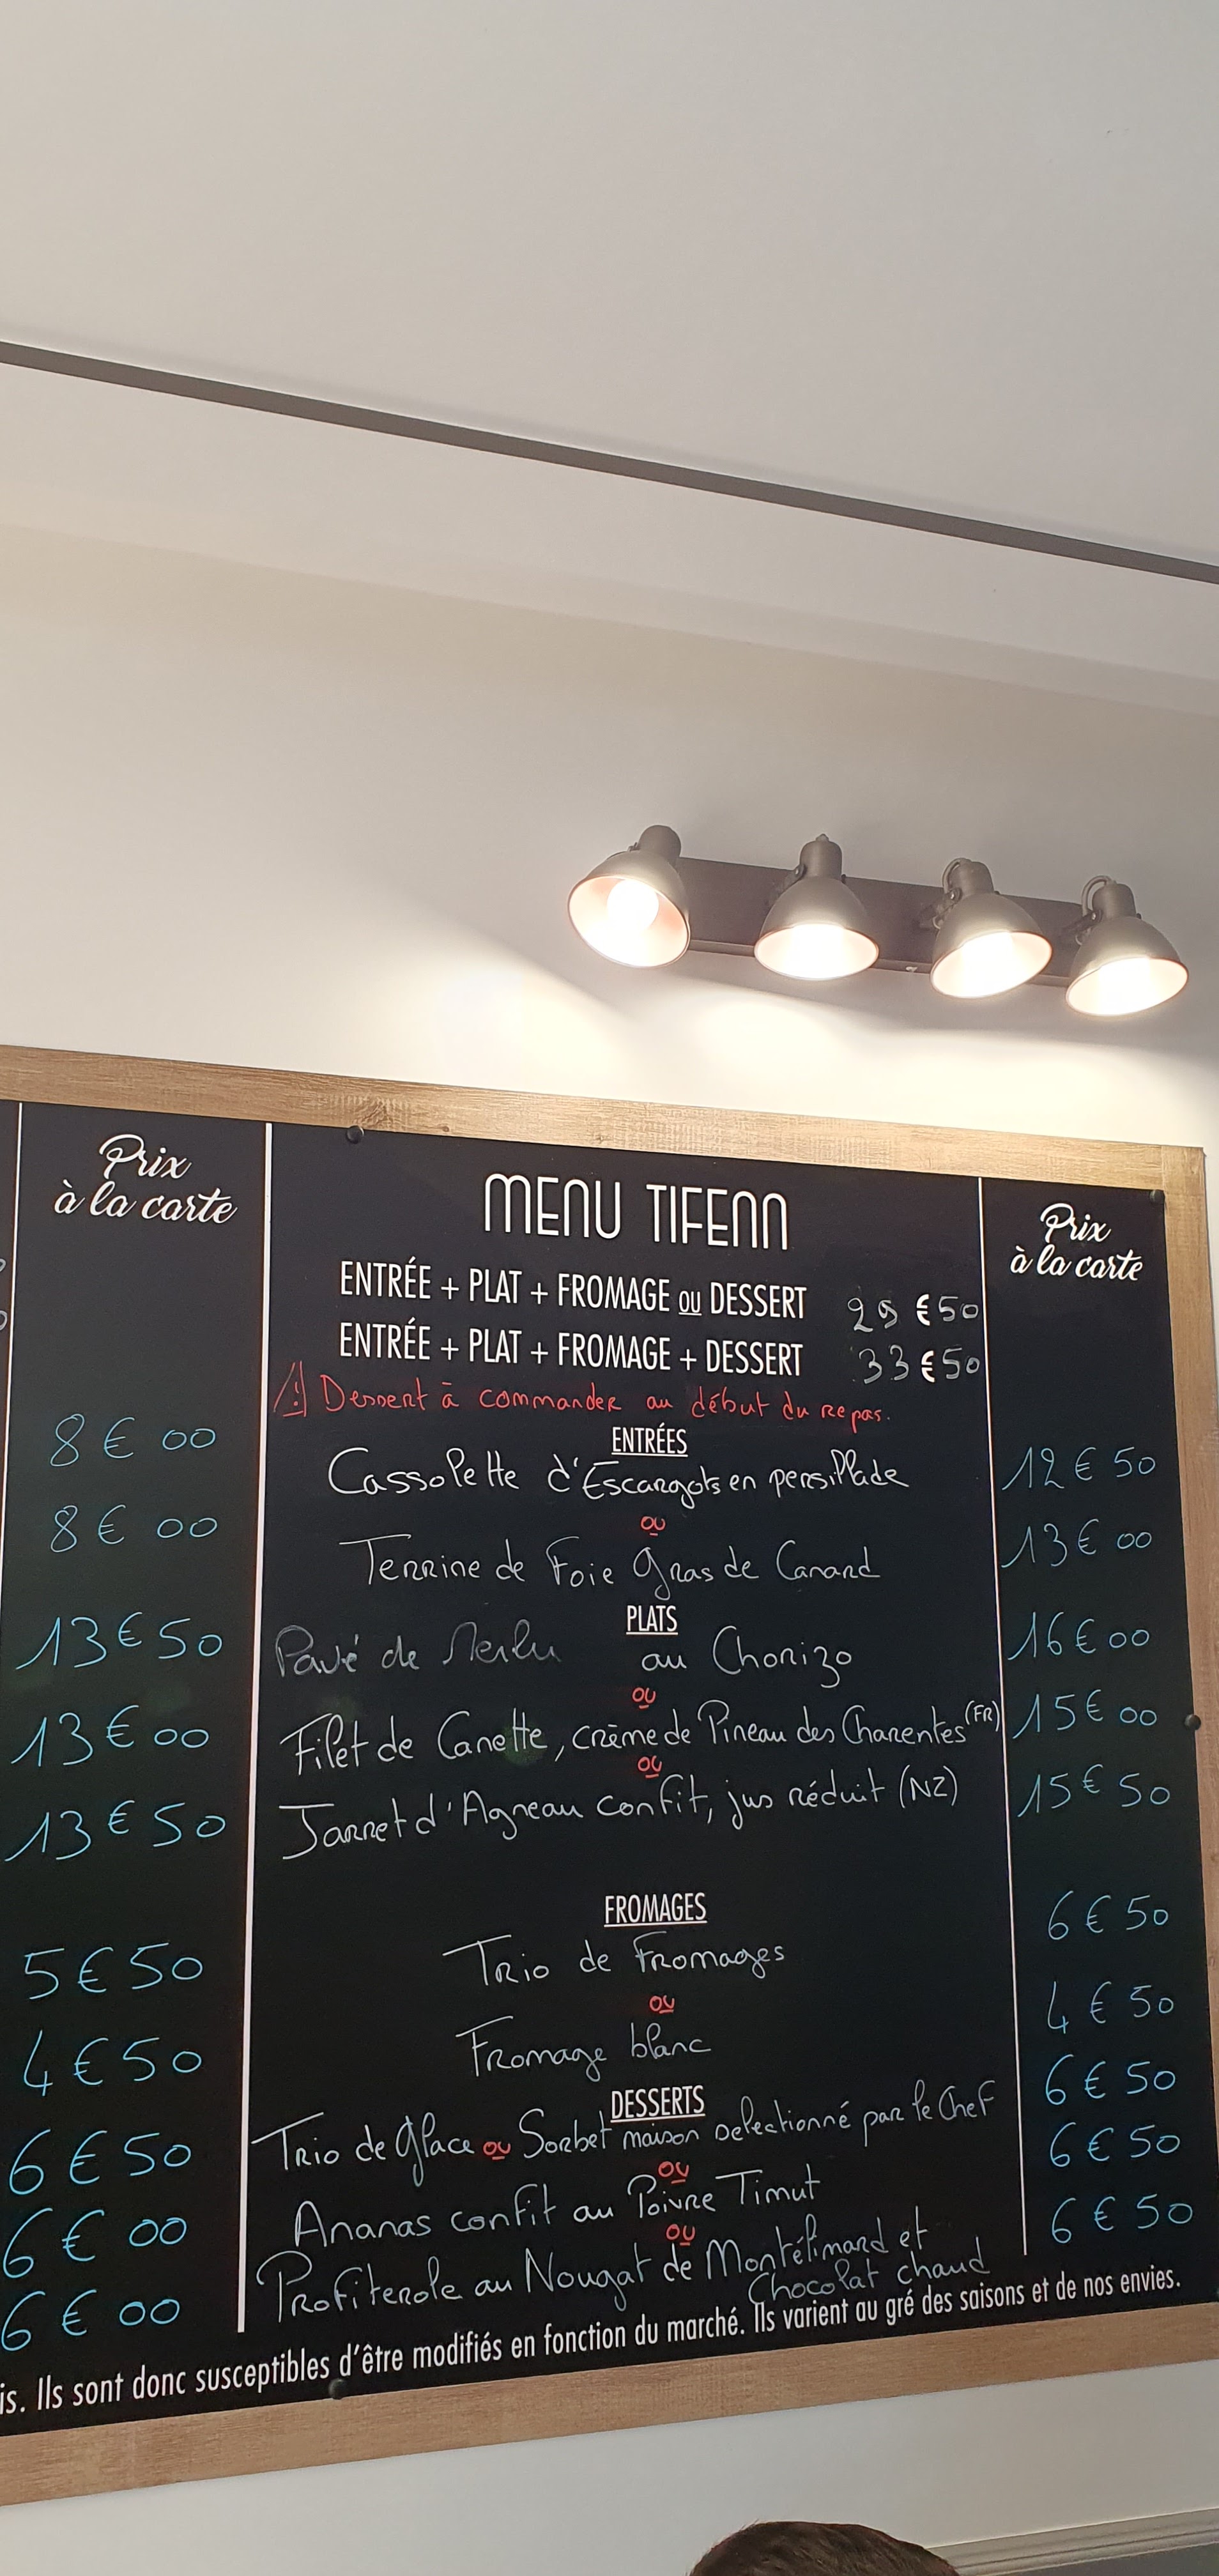 Prix
à la carte
8€00
8€00
13€50
13€00
13€50
5€50
4€50
6€50
6€00
6€00
MENU TIFENN
ENTRÉE + PLAT + FROMAGE OU DESSERT €50
ENTRÉE + PLAT + FROMAGE + DESSERT 33€50
Dessert à commander au début du repas.
ENTRÉES
Cassolette d'Escargots en persillade
ou
Terrine de Foie Gras de Canard
PLATS
Pavé de Merlu au Chorizo
ou
Filet de Canette, crème de Pineau des Charentes (FR)
ou
Jarret d'Agneau confit, jus réduit (NZ)
FROMAGES
Trio de Fromages
ou
Fromage blanc
DESSERTS
Trio de Glace ou Sorbet maison selectionné par le Chef
ou
Ananas confit au Poivre Timut
ou
Profiterole au Nougat de Montélimard et
Chocolat chaud
Prix
à la carte
12€50
13€00
16€00
15€00
15€50
6€50
4€50
6€50
6€50
6€50
is. Ils sont donc susceptibles d'être modifiés en fonction du marché. Ils varient au gré des saisons et de nos envies.